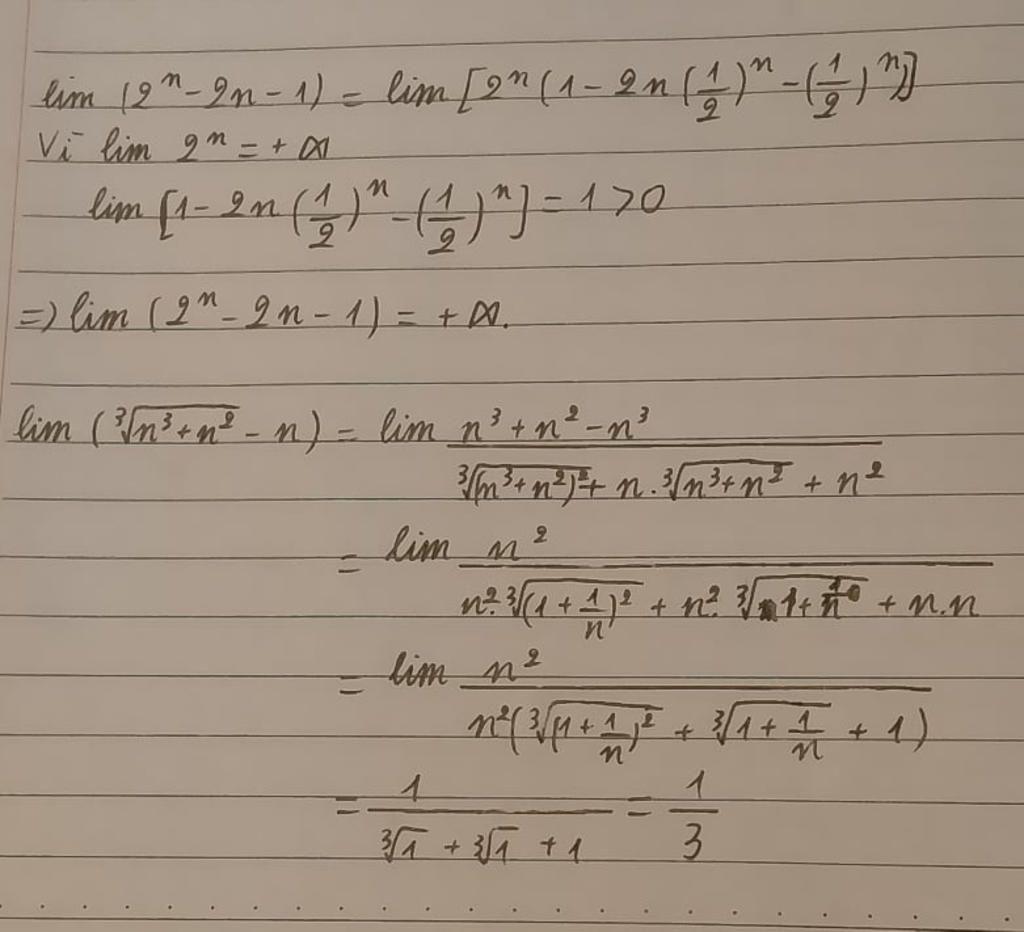 lim (2ⁿ - 2n - 1) = lim [2ⁿ (1 - 2n (1/2)ⁿ - (1/2)ⁿ)]
Vì lim 2ⁿ = + ∞
lim [1 - 2n (1/2)ⁿ - (1/2)ⁿ] = 1 > 0
=> lim (2ⁿ - 2n - 1) = + ∞.
lim (∛(n³ + n²) - n) = lim (n³ + n² - n³) / (∛((n³ + n²)²) + n . ∛(n³ + n²) + n²)
= lim n² / (n² . ∛((1 + 1/n)²) + n² . ∛(1 + 1/n) + n.n)
= lim n² / (n² (∛((1 + 1/n)²) + ∛(1 + 1/n) + 1))
= 1 / (∛1 + ∛1 + 1) = 1/3